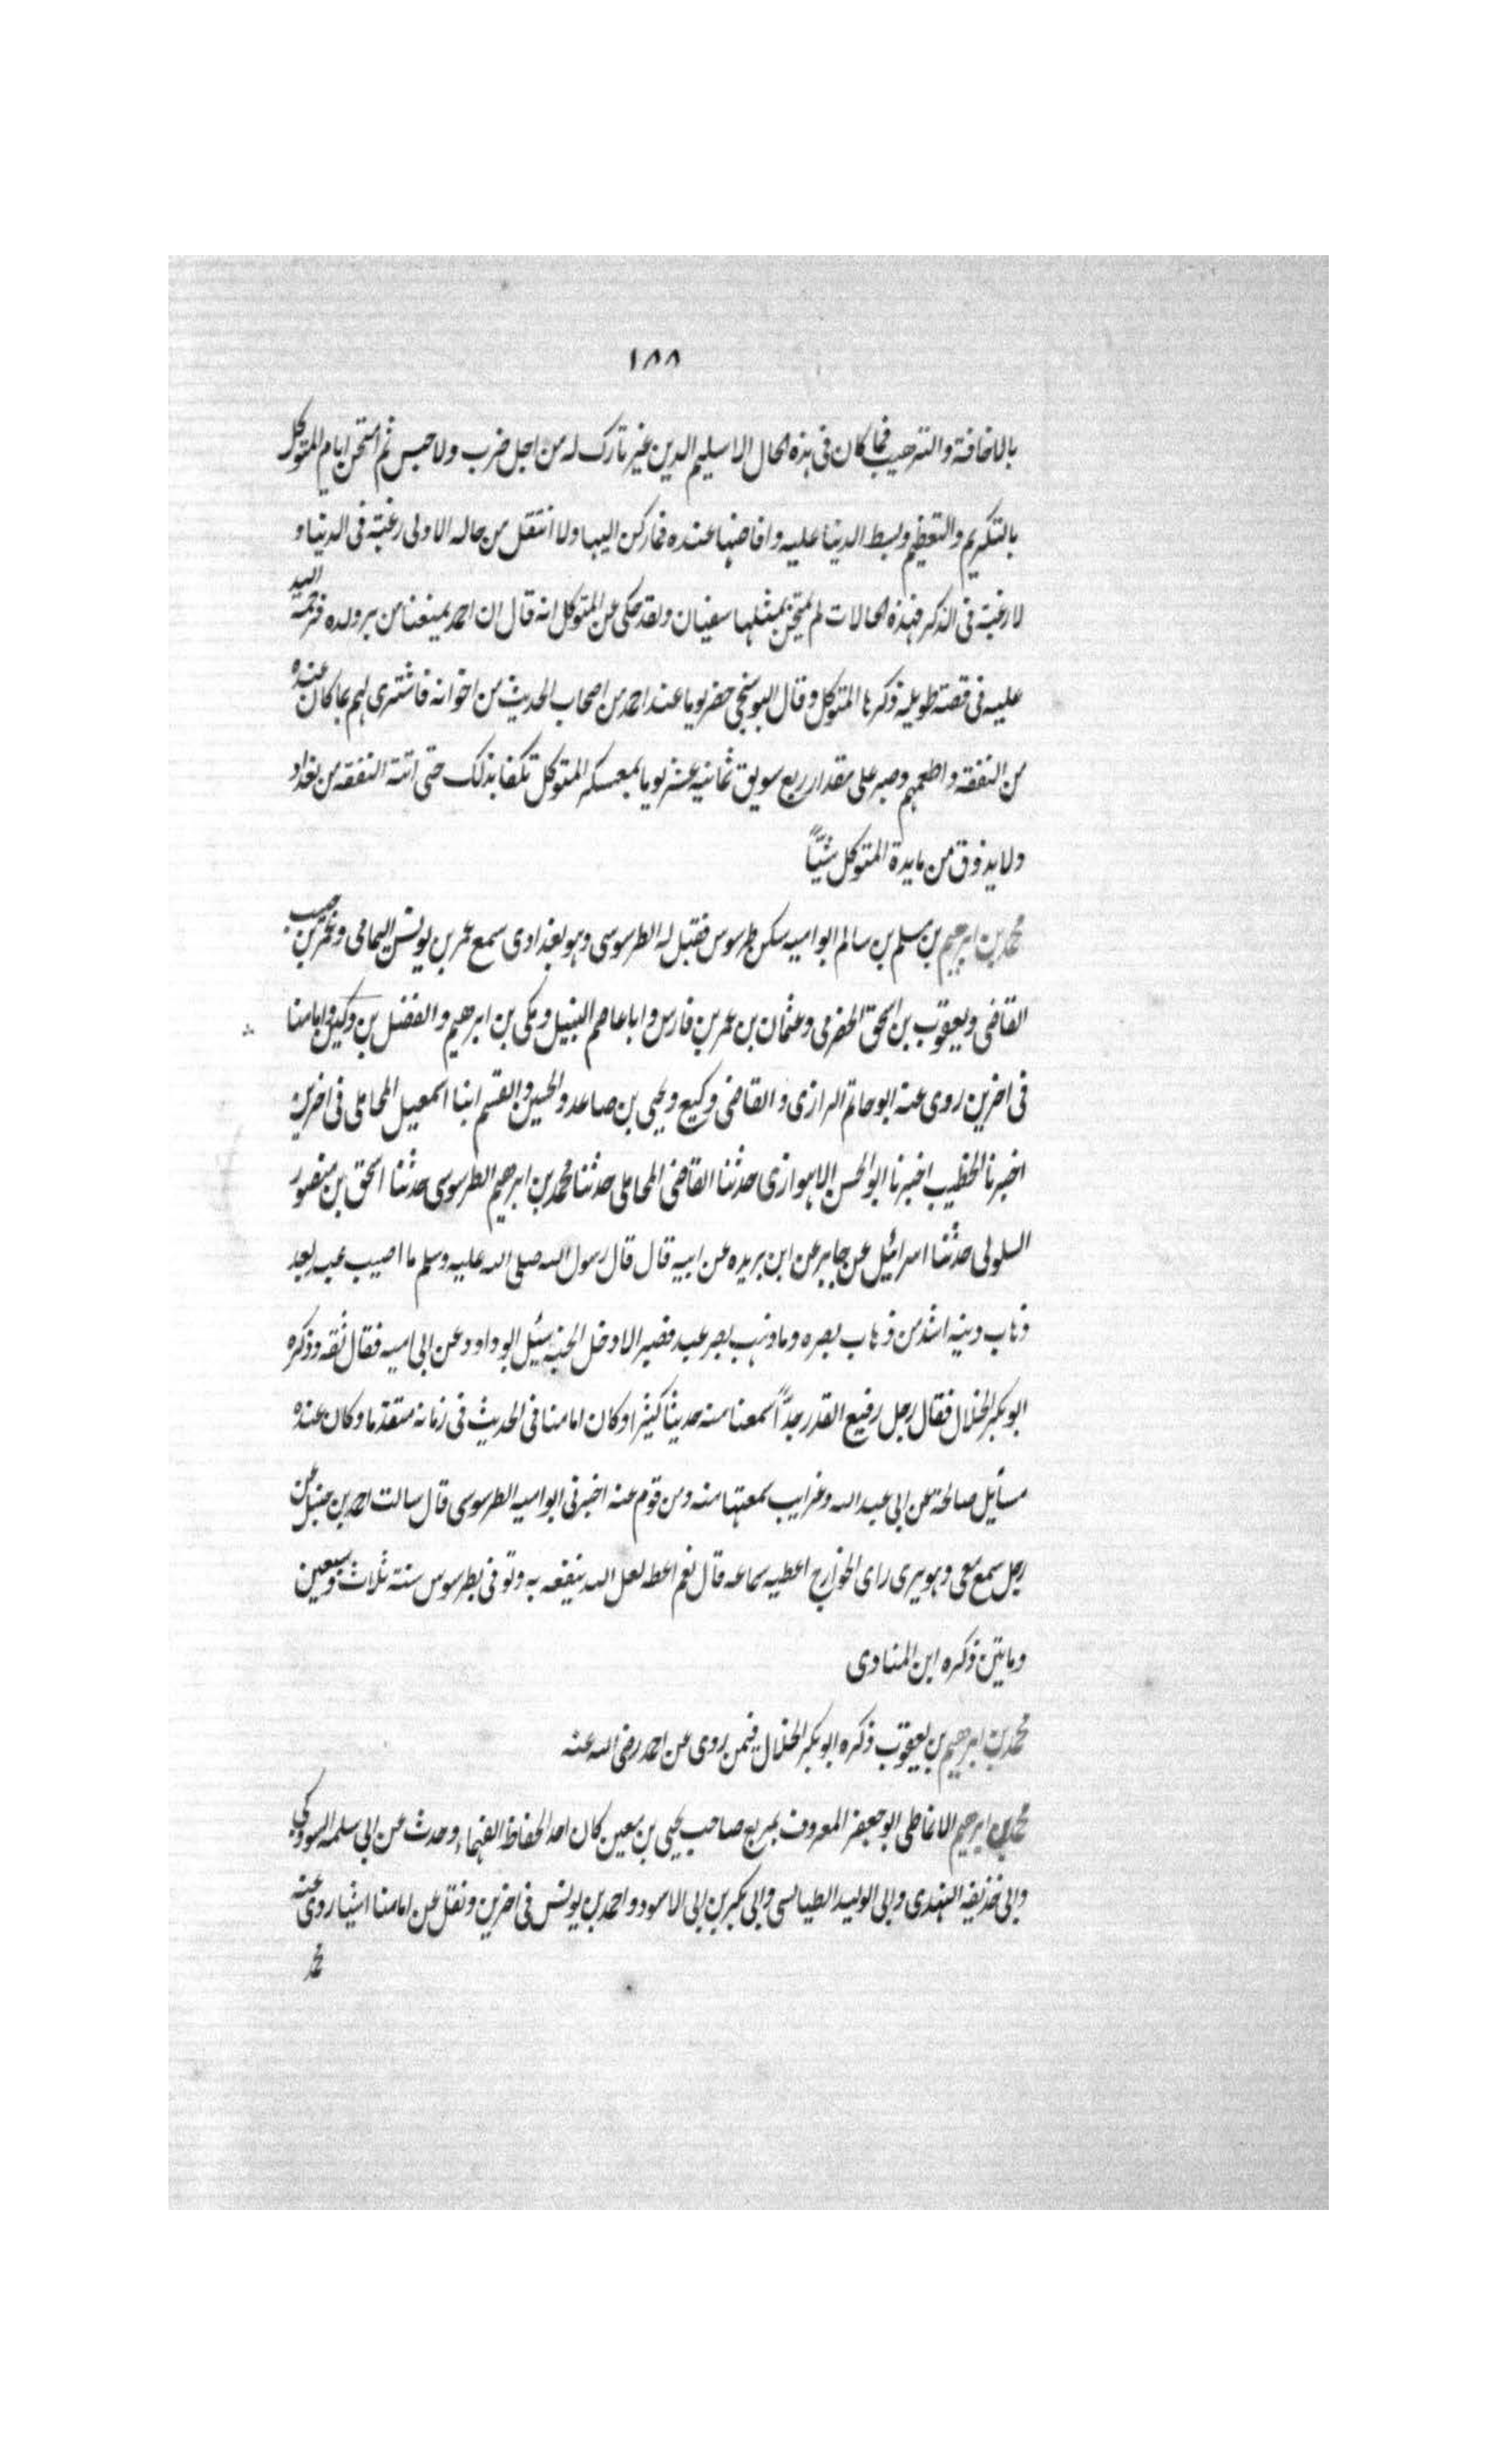 ١٨٨
بالاخافة والترهيب فما كان فى هذه الحال الا سليم الدين غير تارك له من اجل ضرب ولا حبس ثم امتحن ايام المتوكل
بالتكريم والتعظيم وبسط الدنيا عليه وافاضها عنده فما ركن اليها ولا انتقل من حاله الاولى رغبة فى الدنيا و
لا رغبة فى الذكر فهذه الحالات لم يمتحن بمثلها سفيان ولقد حكى عن المتوكل انه قال ان احمد يمنعنا من بر ولده فرحمة الله
عليه فى قصة طويلة ذكرها المتوكل وقال البوسنجى حضر يوما عند احمد من اصحاب الحديث من اخوانه فاشترى لهم بما كان عنده
من النفقة واطعمهم وصبر على مقدار ربع سويق ثمانية عشر يوما بمعسكر المتوكل تكفا بذلك حتى اتته النفقه من بغداد
ولا يذوق من مايدة المتوكل شيئاً
محمد بن ابرهيم بن مسلم بن سالم ابو اميه سكن طرسوس فقيل له الطرسوسى وهو بغدادى سمع عمر بن يونس اليمامى وعمر بن حبيب
القاضى ويعقوب بن اسحق الحضرمى وعثمان بن عمر بن فارس وابا عاصم النبيل ومكى بن ابرهيم والفضل بن دكين وامامنا
فى اخرين روى عنه ابو حاتم الرازى والقاضى وكيع ويحيى بن صاعد والحسين والقسم ابنا اسمعيل المحاملى فى اخرين
اخبرنا الخطيب اخبرنا ابو الحسن الاهوازى حدثنا القاضى المحاملى حدثنا محمد بن ابرهيم الطرسوسى حدثنا اسحق بن منصور
السلولى حدثنا اسرائيل عن جابر عن ابن بريده عن ابيه قال قال رسول الله صلى الله عليه وسلم ما اصيب عبد بعد
ذهاب دينه اشد من ذهاب بصره وما ذهب بصر عبد فصبر الا دخل الجنة سئل ابو داود عن ابى اميه فقال ثقه وذكره
ابو بكر الخلال فقال رجل رفيع القدر جدّاً سمعنا منه حديثا كثيرا وكان امامنا فى الحديث فى زمانه متقدما وكان عنده
مسائل صالحة عن ابى عبد الله وغرايب سمعتها منه ومن قوم عنه اخبرنى ابو اميه الطرسوسى قال سالت احمد بن حنبل عن
رجل سمع معى وهو يرى راى الخوارج اعطيه سماعه قال نعم اعطه لعل الله ينفعه به وتوفى بطرسوس سنة ثلاث وسبعين
ومايتين ذكره ابن المنادى
محمد بن ابرهيم بن يعقوب ذكره ابو بكر الخلال فيمن روى عن احمد رضى الله عنه
محمد بن ابرهيم الانماطى ابو جعفر المعروف بمربع صاحب يحيى بن معين كان احد الحفاظ الفهماء وحدث عن ابى سلمه التبوذكى
وابى حذيفه النهدى وابى الوليد الطيالسى وابى بكر بن ابى الاسود واحمد بن يونس فى اخرين ونقل عن امامنا اشيا روى عنه